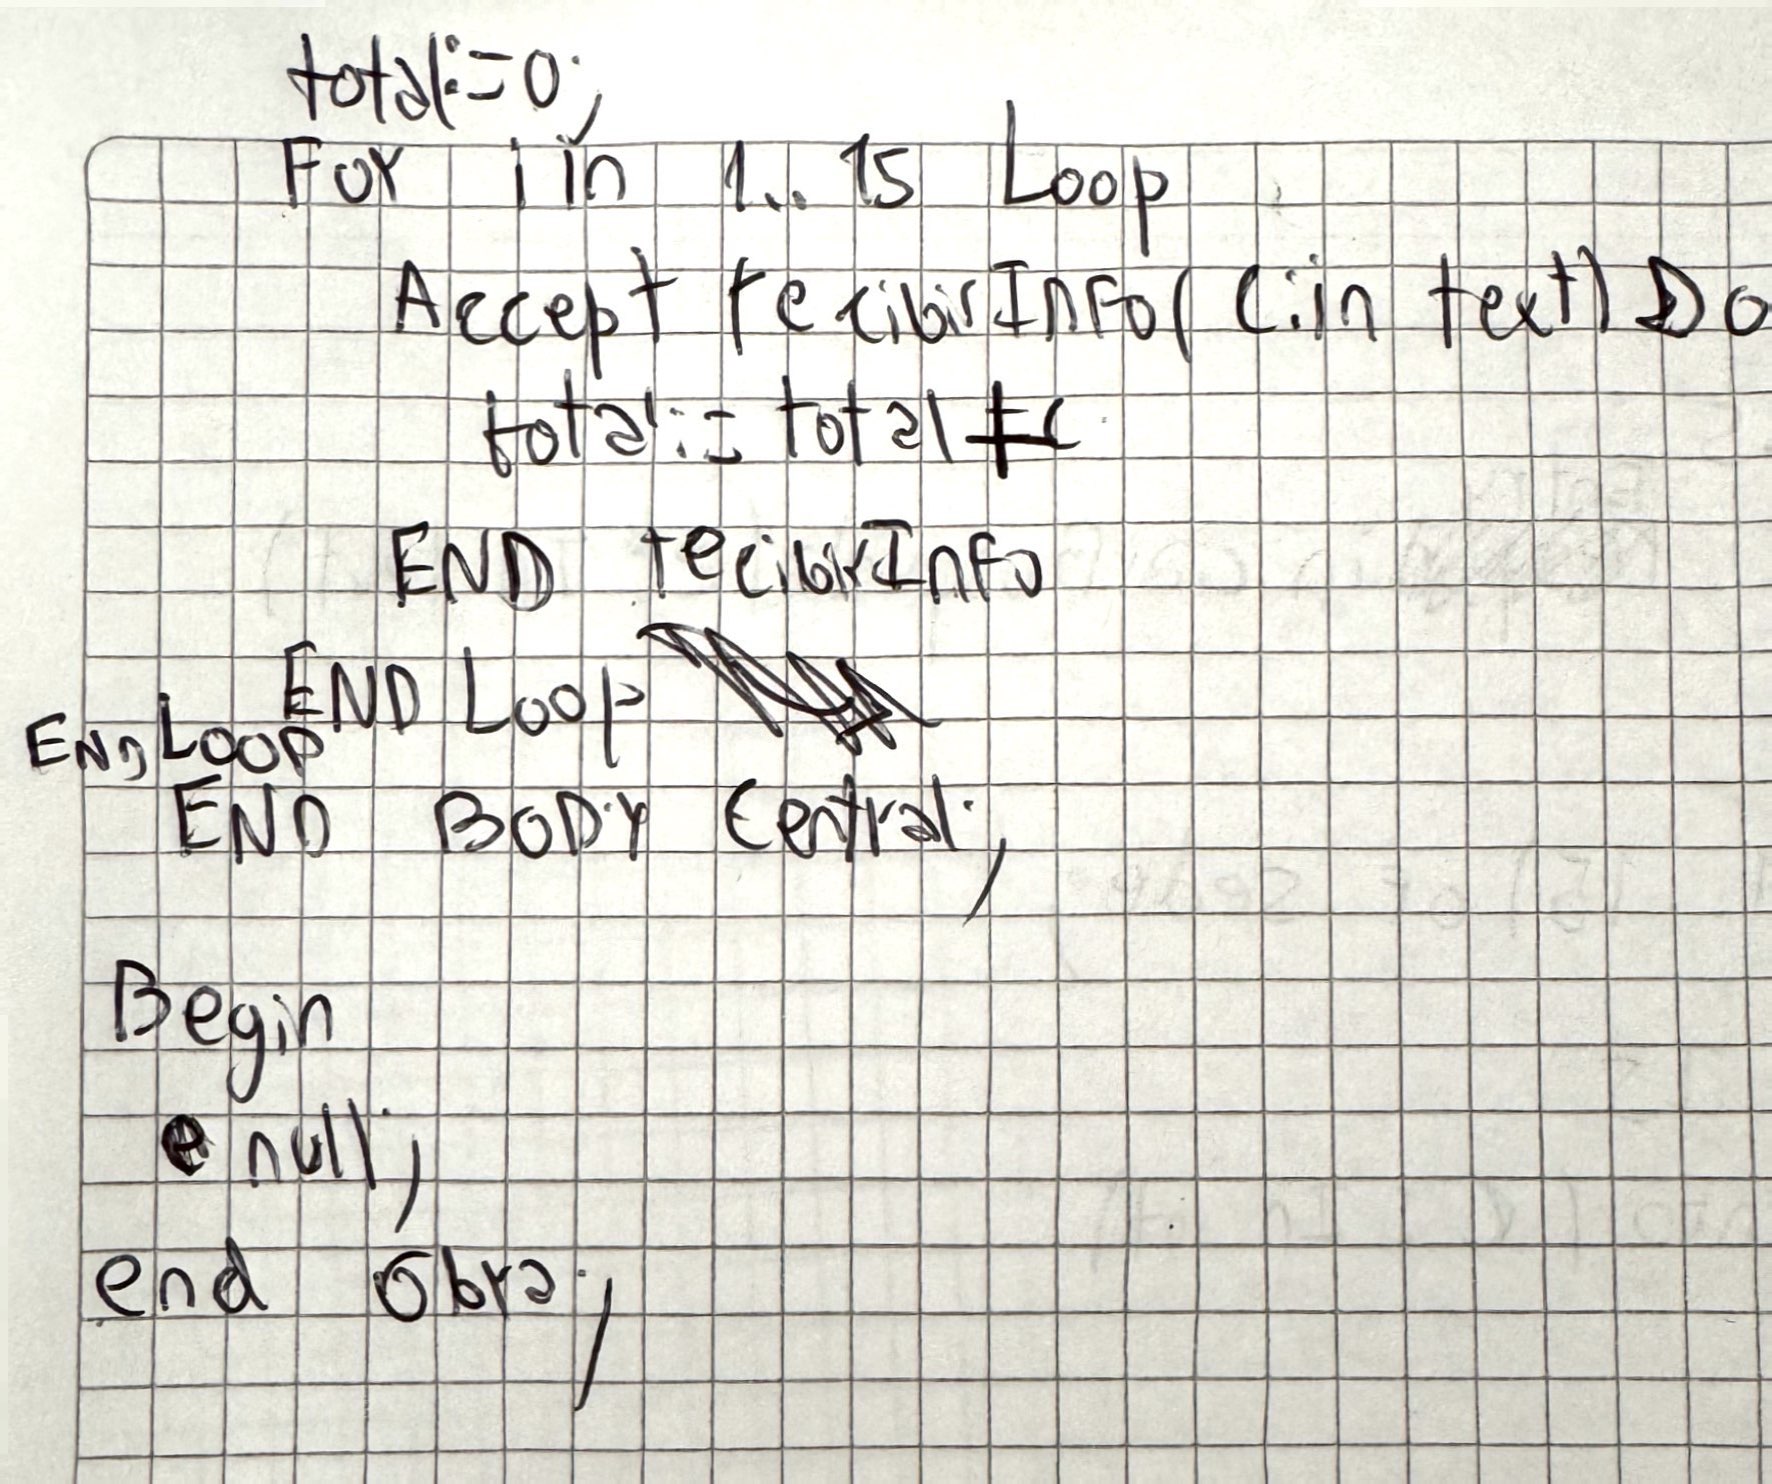 total:=0;
For i in 1..15 Loop
Accept recibirInfo( C:in text) Do
total:= total +c
END recibirInfo
END Loop
END LOOP
END BODY Central;
Begin
null;
end Obra;